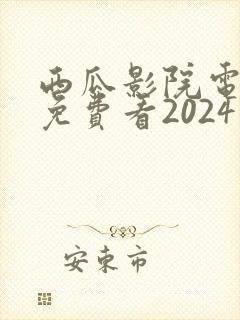 西瓜影院電
免費看2024
安東市